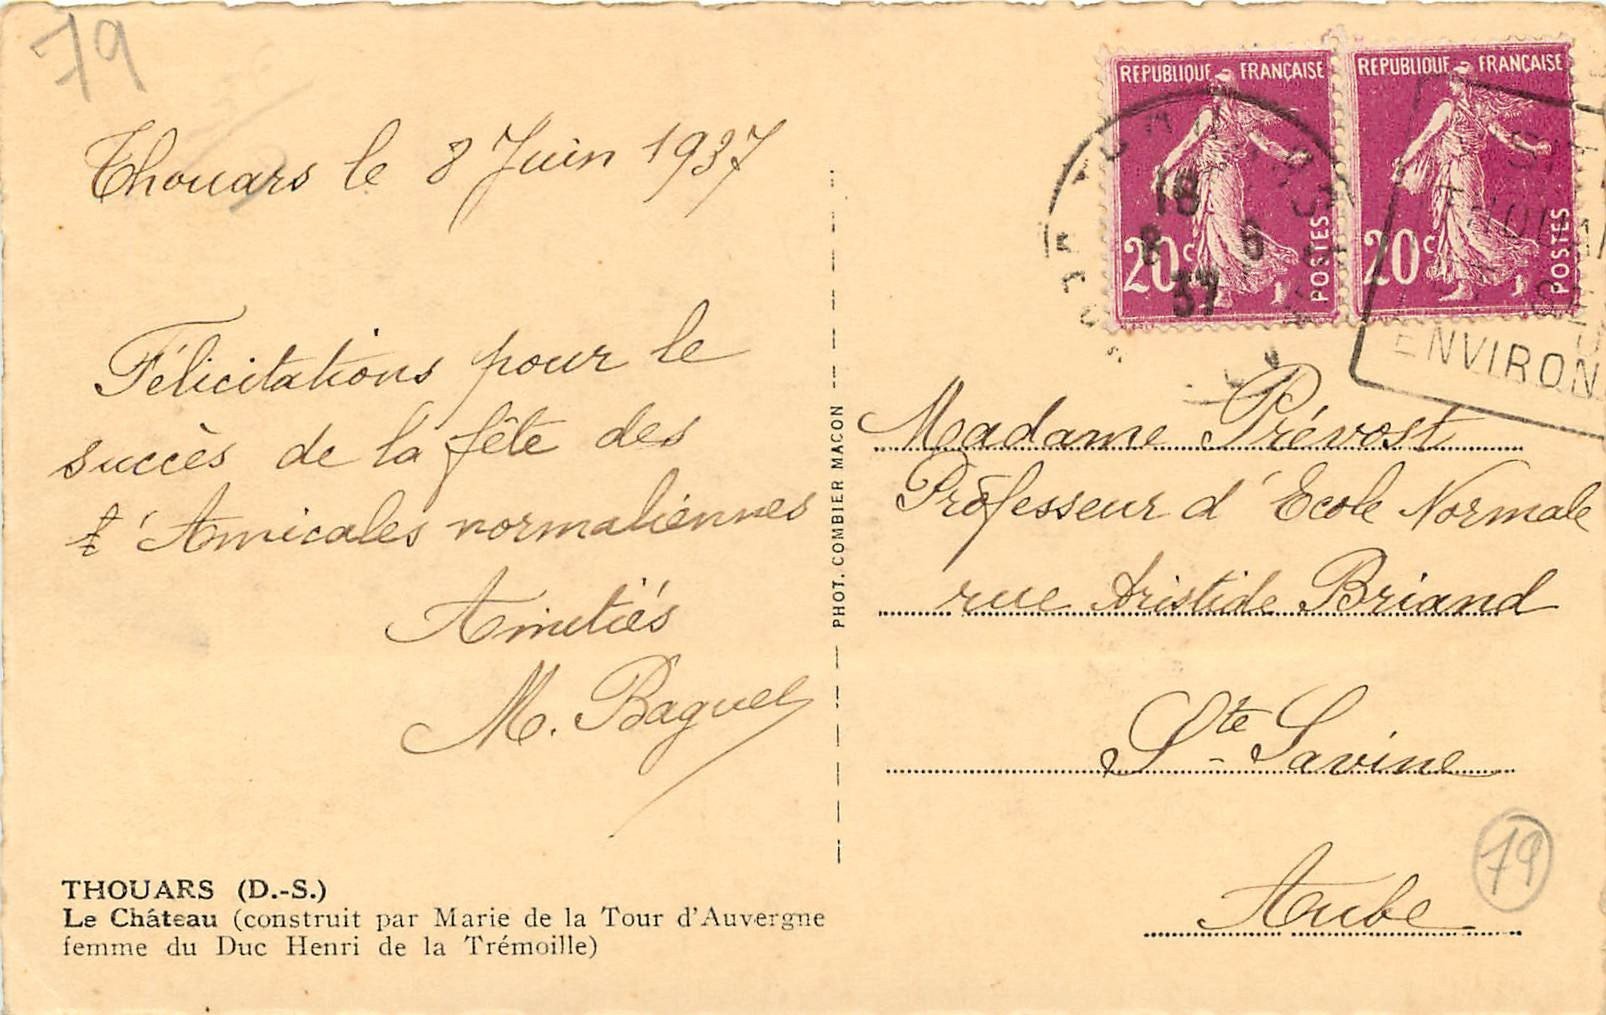 79
Thouars le 8 Juin 1937
Félicitations pour le
succès de la fête des
Amicales normaliennes
Amitiés
M. Baguel
THOUARS (D.-S.)
Le Château (construit par Marie de la Tour d'Auvergne
femme du Duc Henri de la Trémoille)
PHOT. COMBIER MACON
REPUBLIQUE FRANÇAISE
20c
POSTES
REPUBLIQUE FRANÇAISE
20c
POSTES
THOUARS
18
8 6
37
ENVIRON
Madame Prévost
Professeur d'Ecole Normale
rue Aristide Briand
Ste Savine
Aube
79